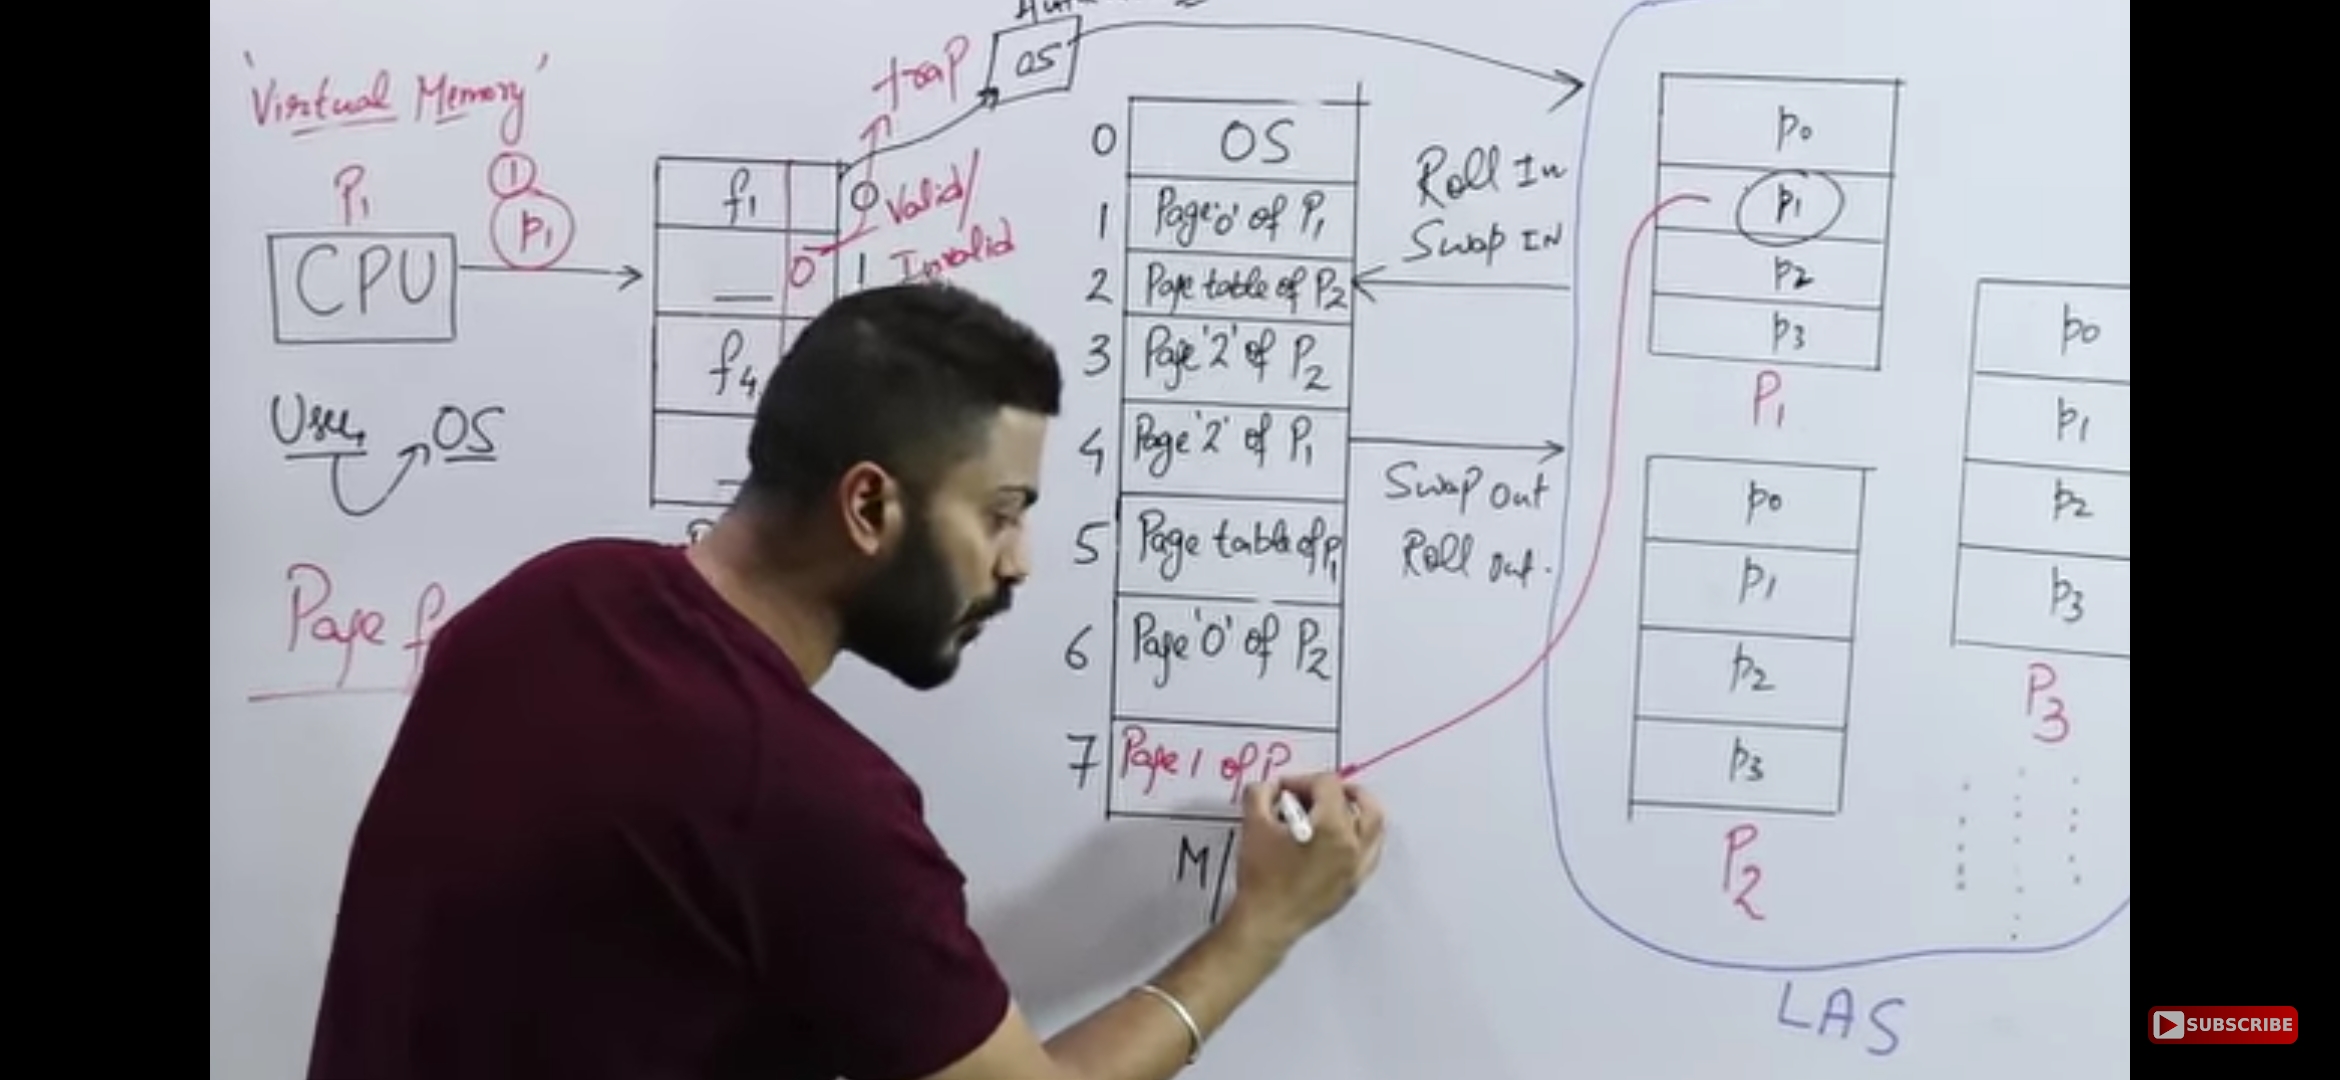 'Virtual Memory'
P1
CPU
1
p1
User
OS
Page f
f1
0
0
1
f4
trap
Valid/
Invalid
OS
0 OS
1 Page '0' of P1
2 Page table of P2
3 Page '2' of P2
4 Page '2' of P1
5 Page table of P1
6 Page '0' of P2
7 Page 1 of P
M/
Roll In
Swap IN
Swap Out
Roll out.
p0
p1
p2
p3
P1
p0
p1
p2
p3
P2
p0
p1
p2
p3
P3
LAS
SUBSCRIBE